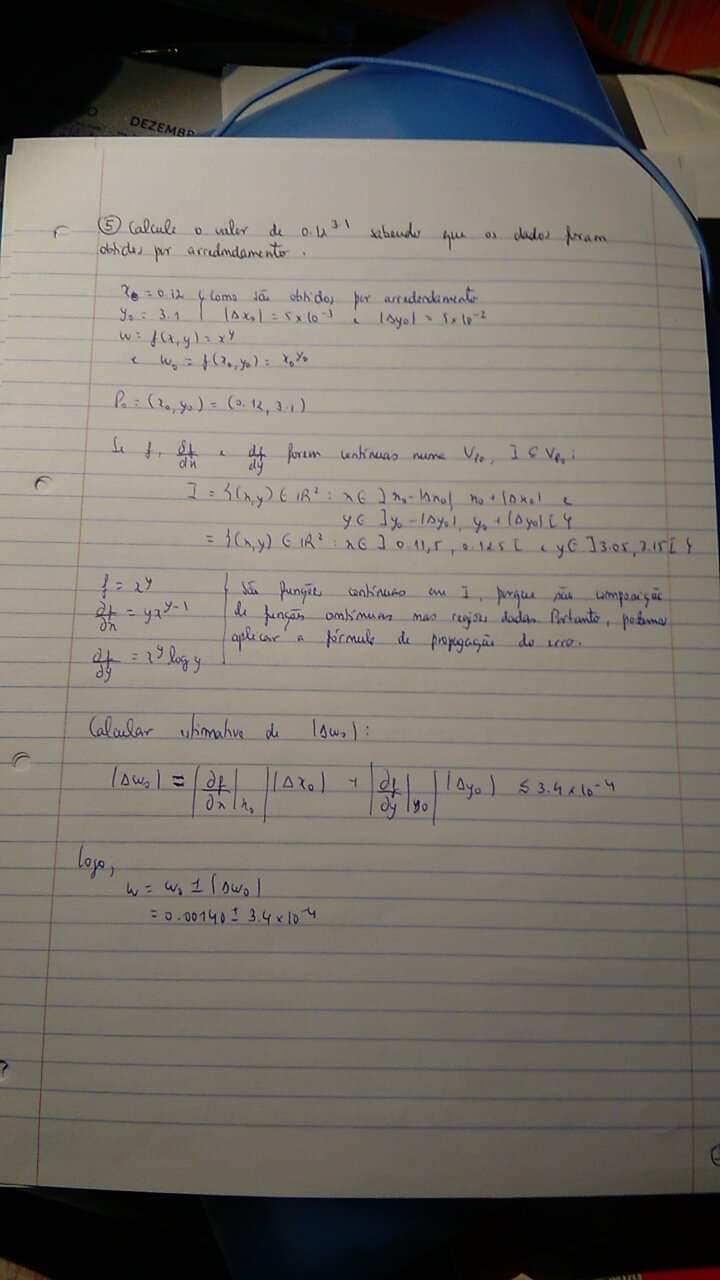 DEZEMB
⑤ Calcule o valor de 0.12^3.1 sabendo que os dados foram
obtidos por arredondamento.
x₀ = 0.12 } como são obtidos por arredondamento
y₀ = 3.1 | |Δx₀| = 5×10⁻³ e |Δy₀| = 5×10⁻²
w = f(x,y) = x^y
e w₀ = f(x₀,y₀) = x₀^y₀
P₀ = (x₀,y₀) = (0.12, 3.1)
Se f, ∂f/∂x e ∂f/∂y forem contínuas numa V_P₀, I ⊆ V_P₀:
I = {(x,y) ∈ ℝ² : x ∈ ]x₀-|Δx₀|, x₀+|Δx₀|[ e
y ∈ ]y₀-|Δy₀|, y₀+|Δy₀|[}
= {(x,y) ∈ ℝ² : x ∈ ]0.11,5, 0.125[ e y ∈ ]3.05, 3.15[}
f = x^y | são funções contínuas em I, porque são composição
∂f/∂x = yx^(y-1) | de funções contínuas nas regiões dadas. Portanto, podemos
aplicar a fórmula de propagação do erro.
∂f/∂y = x^y log y
Calcular estimativa de |Δw₀|:
|Δw₀| = |∂f/∂x|x₀| |Δx₀| + |∂f/∂y|y₀| |Δy₀| ≤ 3.4×10⁻⁴
Logo,
w = w₀ ± |Δw₀|
= 0.00140 ± 3.4×10⁻⁴
?